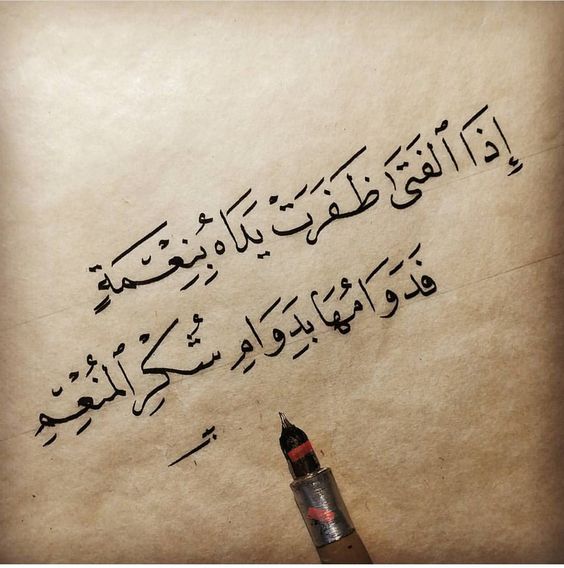 إِذَا ٱلفَتَىٰ ظَفَرَتْ يَدَاهُ بِنِعْمَةٍ
فَدَوَامُهَا بِدَوَامِ شُكْرِ ٱلمُنْعِمِ